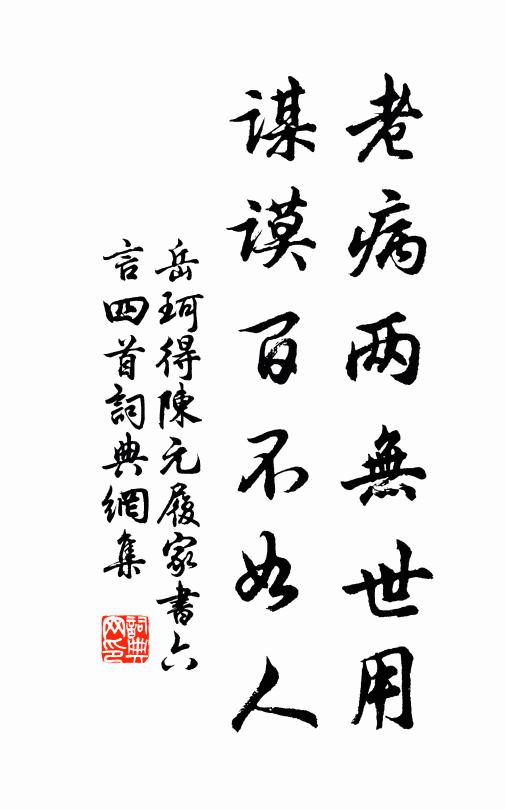 老病两無世用
謀謨百不如人
岳珂得陳元履家書六
言四首詞典網集
詞典网印